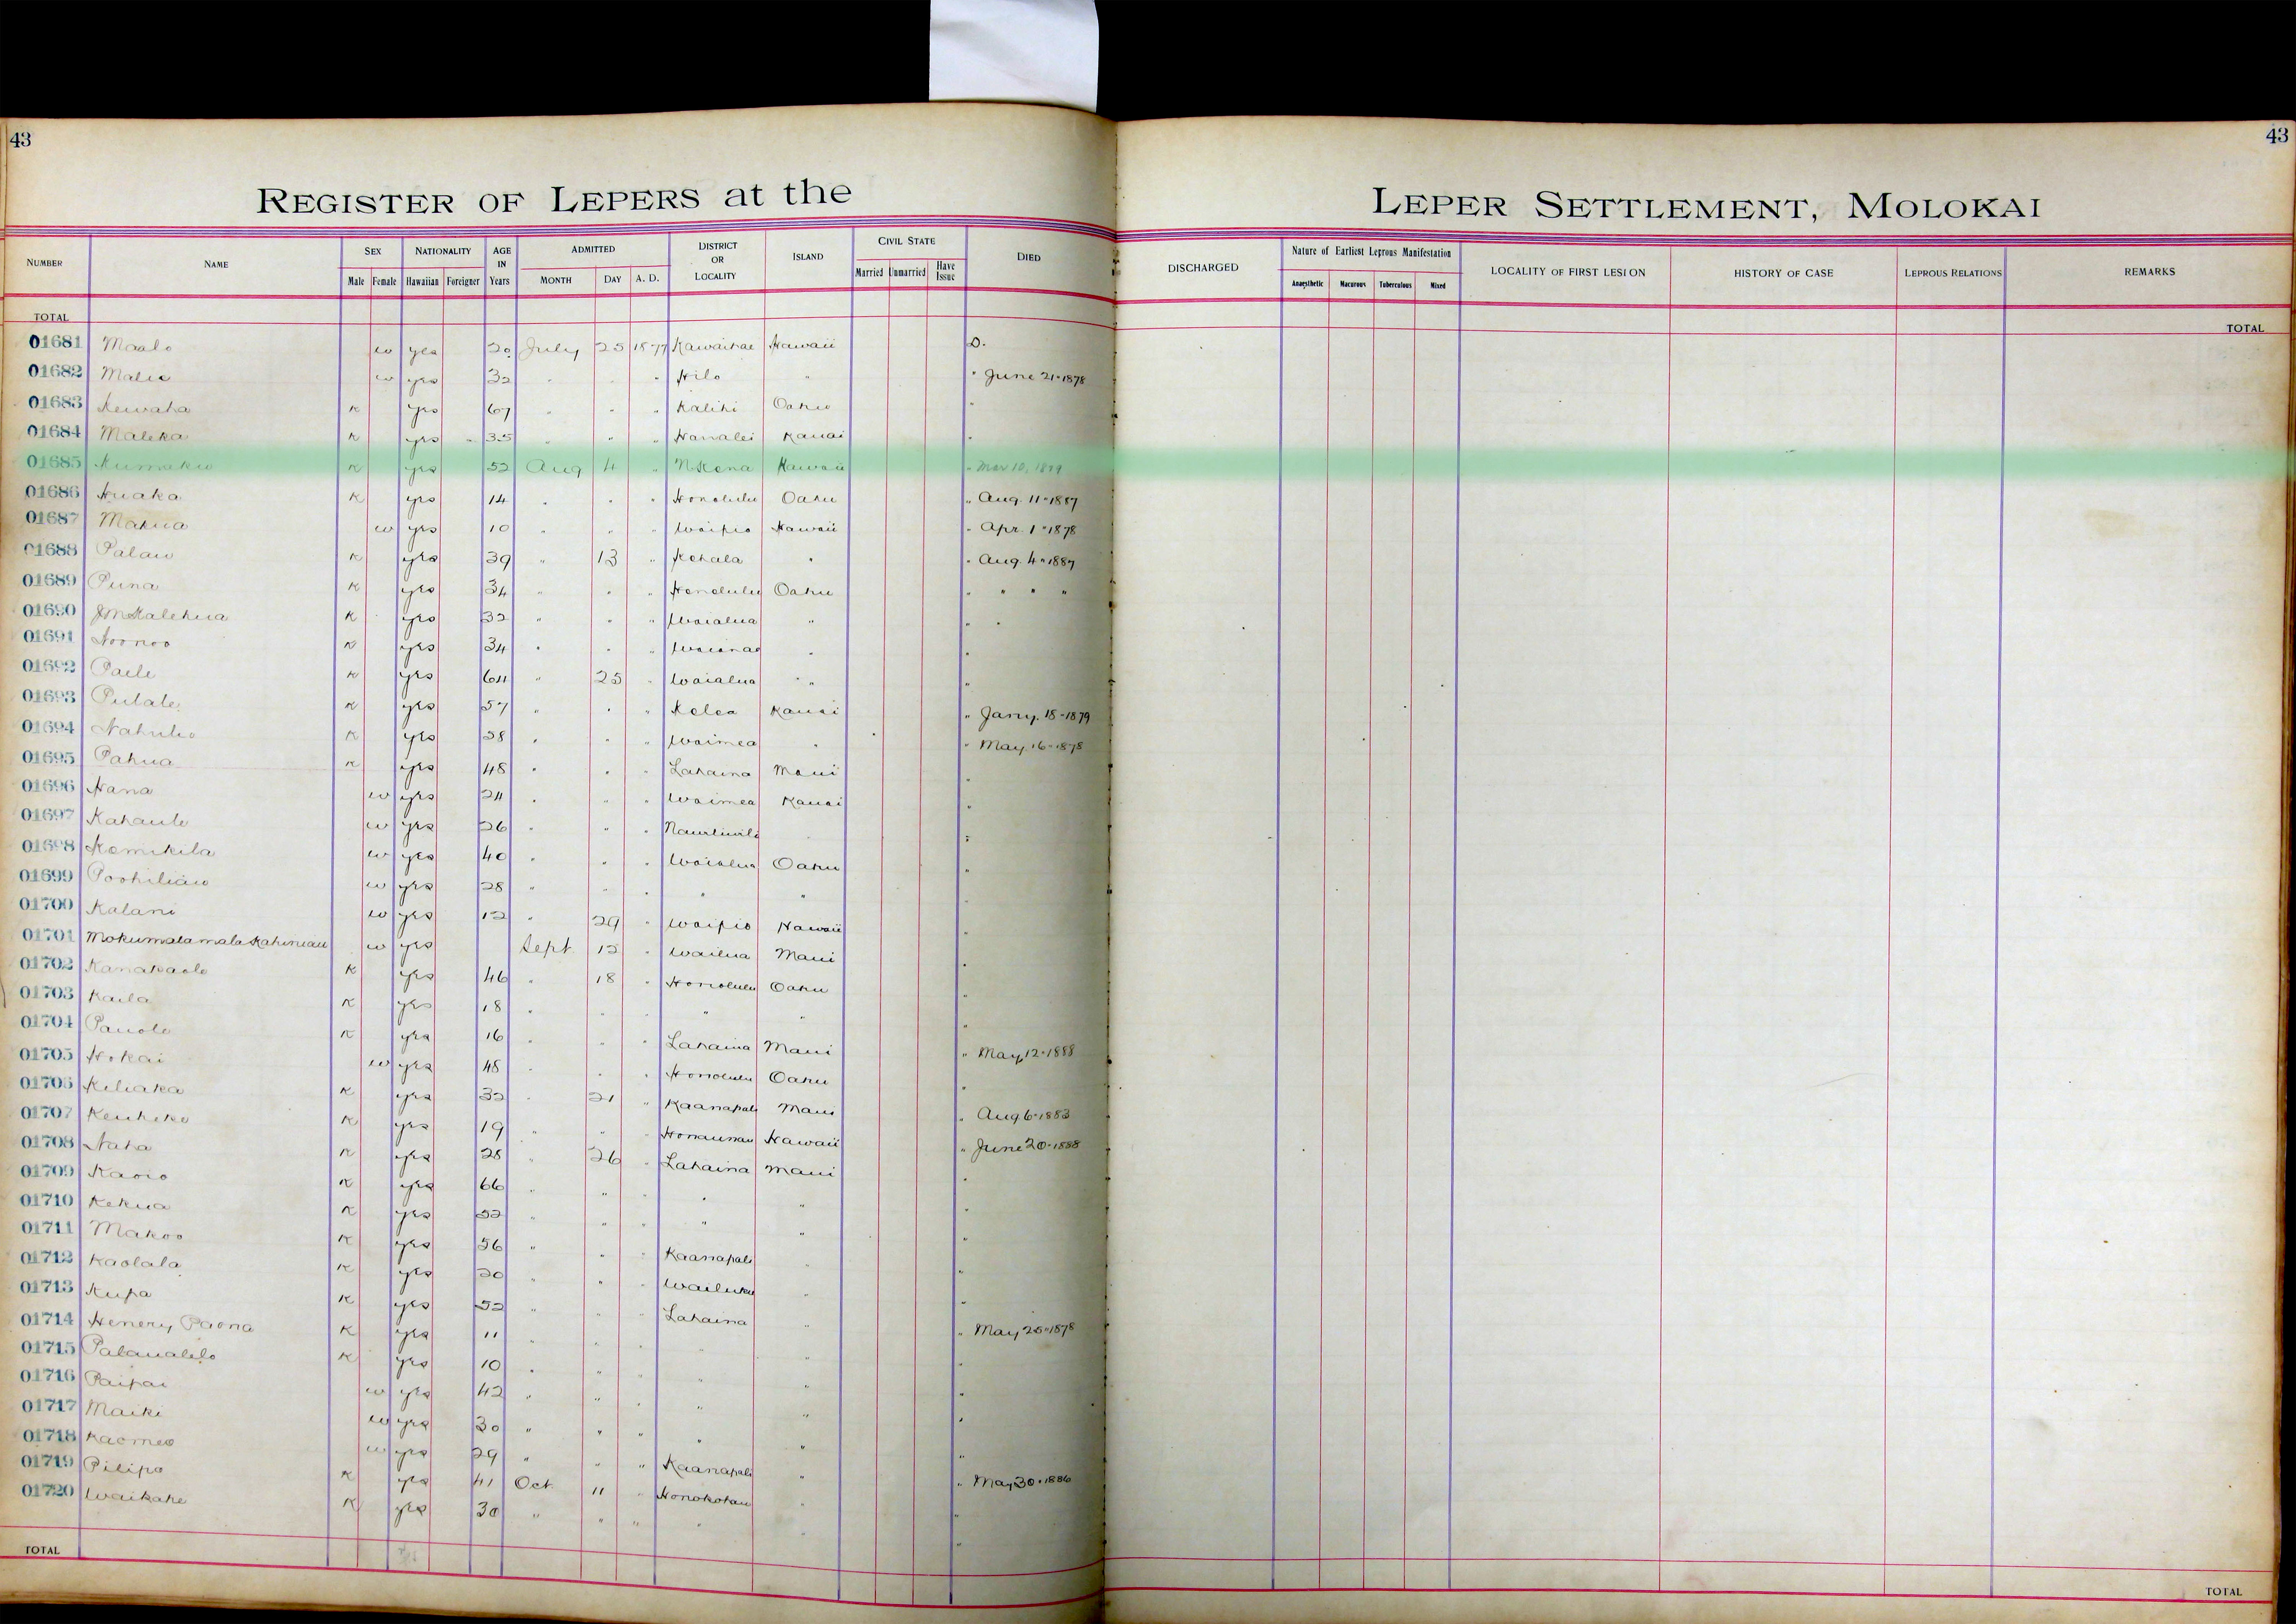 43
43
REGISTER OF LEPERS at the
LEPER SETTLEMENT, MOLOKAI
NUMBER NAME SEX Male Female NATIONALITY Hawaiian Foreigner AGE IN Years ADMITTED MONTH DAY A. D. DISTRICT OR LOCALITY ISLAND CIVIL STATE Married Unmarried Have Issue DIED
DISCHARGED Nature of Earliest Leprous Manifestation Anaesthetic Macurous Tuberculous Mixed LOCALITY OF FIRST LESION HISTORY OF CASE LEPROUS RELATIONS REMARKS
TOTAL
TOTAL
01681 Maalo w yes 20 July 25 1877 Kawaihae Hawaii D.
01682 Malie w yes 32 " " " Hilo " " June 21-1878
01683 Kewaha K yes 67 " " " Kalihi Oahu "
01684 Maleka K yes 35 " " " Hanalei Kauai "
01685 Kumaku K yes 52 Aug 4 " N Kona Hawaii " Mar 10, 1879
01686 Huaka K yes 14 " " " Honolulu Oahu " Aug. 11-1887
01687 Makua w yes 10 " " " Waipio Hawaii " Apr. 1-1878
01688 Palau K yes 39 " 13 " Kohala " " Aug. 4-1887
01689 Puna K yes 34 " " " Honolulu Oahu " " " "
01690 J M Kalehua K yes 32 " " " Waialua " " "
01691 Hoonoo K yes 34 " " " Waianae " "
01692 Paele K yes 64 " 25 " Waialua " " "
01693 Pulale K yes 57 " " " Koloa Kauai " Jany. 18-1879
01694 Nahuho K yes 28 " " " Waimea " " May. 16-1878
01695 Pahua K yes 48 " " " Lahaina Maui "
01696 Hana w yes 24 " " " Waimea Kauai "
01697 Kahaule w yes 26 " " " Nawiliwili "
01698 Kamikila w yes 40 " " " Waialua Oahu "
01699 Poohiliau w yes 28 " " " " "
01700 Kalani w yes 12 " 29 " Waipio Hawaii "
01701 Mokumalamala Kahiniau w yes Sept 12 " Wailua Maui "
01702 Kanakaole K yes 46 " 18 " Honolulu Oahu "
01703 Kaila K yes 18 " " " " " "
01704 Pauole K yes 16 " " " Lahaina Maui " May 12-1888
01705 Hokai w yes 48 " " " Honolulu Oahu "
01706 Keliaka K yes 32 " 21 " Kaanapali Maui " Aug 6-1883
01707 Keuheke K yes 19 " " " Honaunau Hawaii " June 20-1888
01708 Naha K yes 28 " 26 " Lahaina Maui "
01709 Kaoio K yes 66 " " " " " "
01710 Kekua K yes 52 " " " " " "
01711 Makoo K yes 56 " " " Kaanapali " "
01712 Kaolala K yes 20 " " " Wailuku " "
01713 Kupa K yes 52 " " " Lahaina " " May 25-1878
01714 Henery Paona K yes 11 " " " " " "
01715 Palaualelo K yes 10 " " " " " "
01716 Paipai w yes 42 " " " " " "
01717 Maiki w yes 30 " " " " " "
01718 Kaomea w yes 29 " " " Kaanapali " " May 30-1886
01719 Pilipo K yes 41 Oct 11 " Honokohau " "
01720 Waikahe K yes 30 " " " " " "
TOTAL
TOTAL